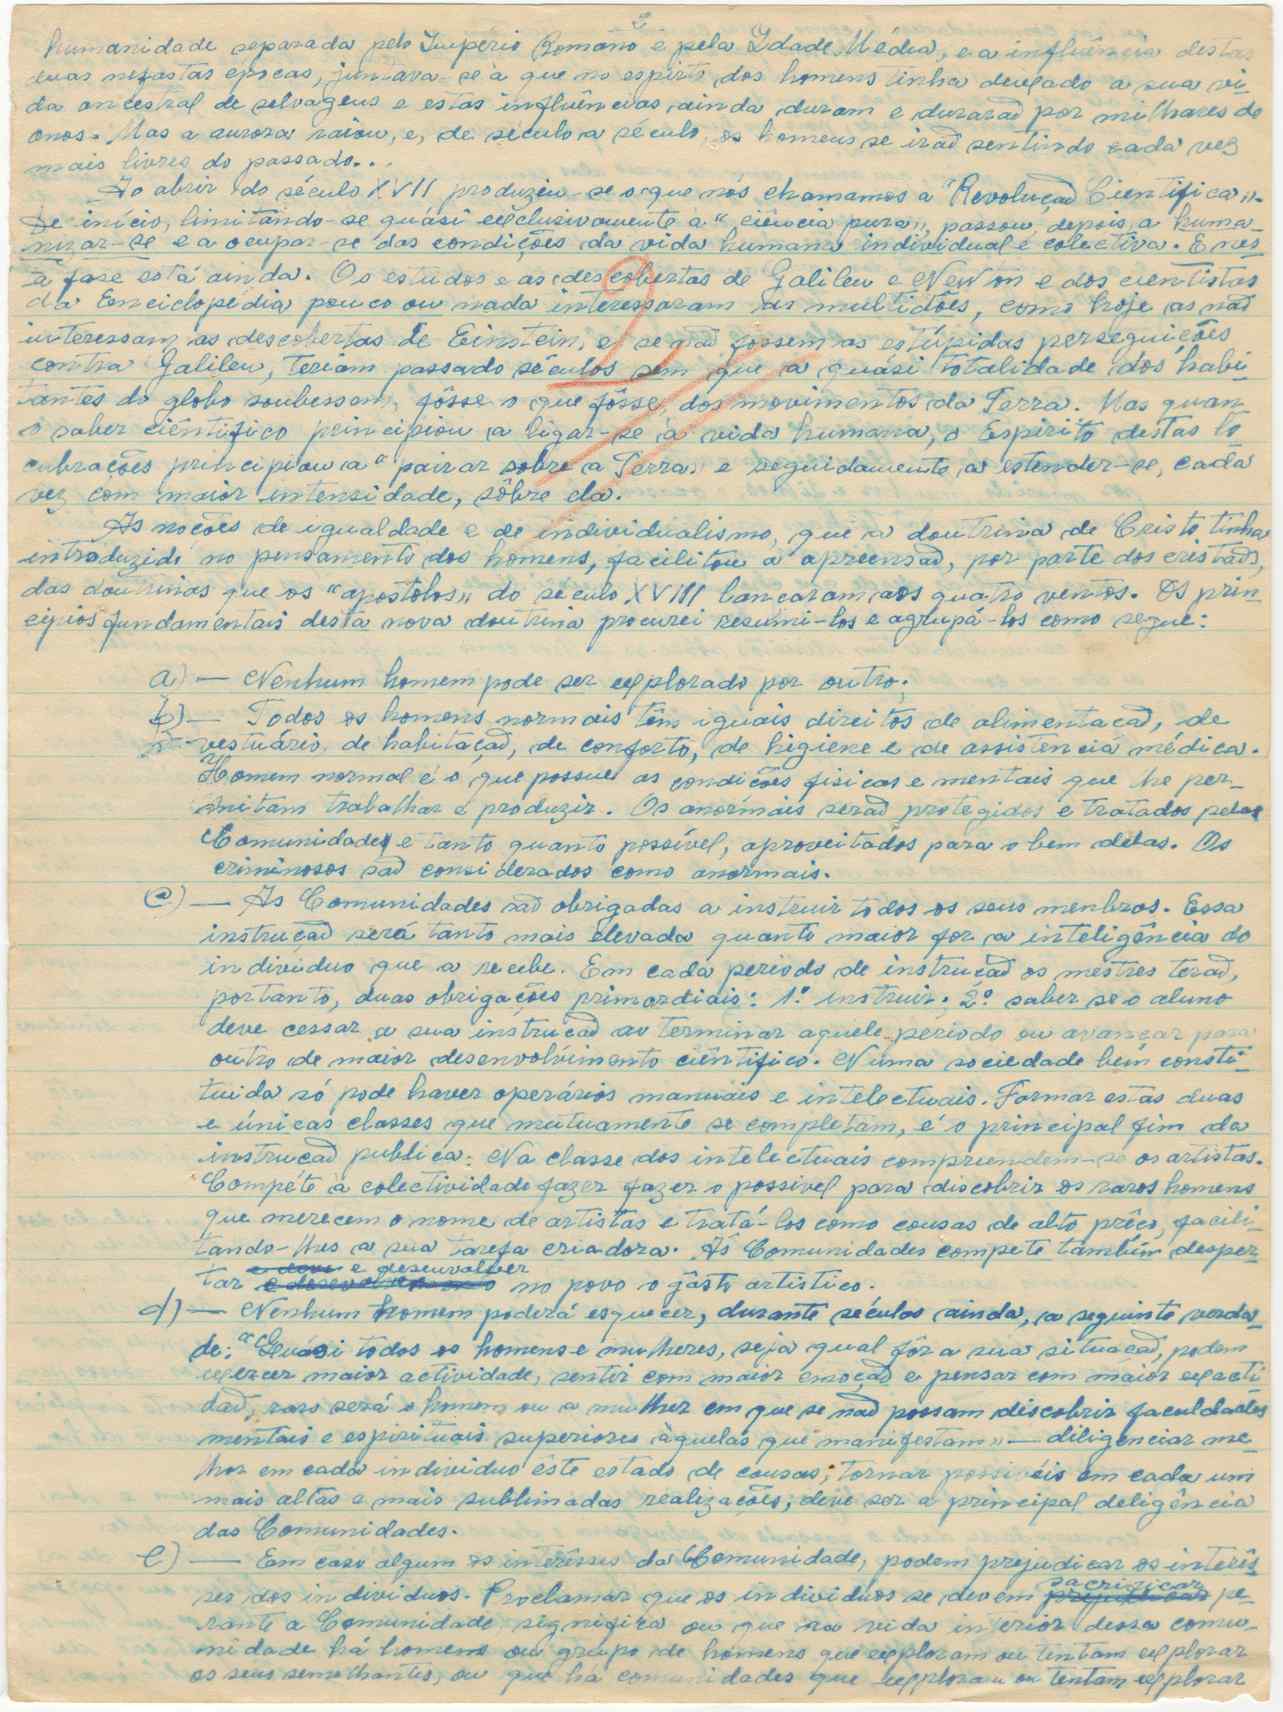 2
humanidade separada pelo Império Romano e pela Idade Média, e a influência destas
duas nefastas épocas, juntava-se à que no espirito dos homens tinha deixado a sua vi-
da ancestral de selvagens e estas influências ainda duram e durarão por milhares de
anos. Mas a aurora raiou, e, de século a século, os homens se irão sentindo cada vez
mais livres do passado...
Ao abrir do século XVII produziu-se o que nós chamamos a "Revolução Cientifica".
De início, limitando-se quási exclusivamente a "ciência pura", passou, depois, a huma-
nizar-se e a ocupar-se das condições da vida humana individual e colectiva. E nes-
ta fase está ainda. Os estudos e as descobertas de Galileu e Newton e dos cientistas
da Enciclopédia pouco ou nada interessaram as multidões, como hoje as não
interessam as descobertas de Einstein, e, se não fossem as estúpidas perseguições
contra Galileu, teriam passado séculos sem que a quási totalidade dos habi-
tantes do globo soubessem, fôsse o que fôsse, dos movimentos da Terra. Mas quan-
o saber ciêntifico principiou a ligar-se à vida humana, o Espírito destas lo
cubrações principiou a "pairar sobre a Terra" e seguidamente, a estender-se, cada
vez com maior intensidade, sôbre ela.
As noções de igualdade e de individualismo, que a doutrina de Cristo tinha
introduzido no pensamento dos homens, facilitou a apreensão, por parte dos cristãos,
das doutrinas que os "apostolos" do século XVIII lançaram aos quatro ventos. Os prin-
cipios fundamentais desta nova doutrina procurei resumi-los e agrupá-los como segue:
a) — Nenhum homem pode ser explorado por outro;
b) — Todos os homens normais têm iguais direitos de alimentação, de
vestuário, de habitação, de conforto, de higiene e de assistencia médica.
Homem normal é o que possue as condições fisicas e mentais que lhe per-
mitam trabalhar e produzir. Os anormais serão protegidos e tratados pelas
Comunidades e tanto quanto possível, aproveitados para o bem delas. Os
criminosos são considerados como anormais.
c) — As Comunidades são obrigadas a instruir todos os seus menbros. Essa
instrução será tanto mais elevada quanto maior for a inteligência do
individuo que a recebe. Em cada periodo de instrução os mestres terão,
portanto, duas obrigações primordiais: 1º instruir; 2º saber se o aluno
deve cessar a sua instrução ao terminar aquele periodo ou avançar para
outro de maior desenvolvimento ciêntifico. Numa sociedade bem consti-
tuida só pode haver operários manuais e intelectuais. Formar estas duas
e únicas classes que mutuamente se completam, é o principal fim da
instrução publica. Na classe dos intelectuais compreendem-se os artistas.
Compéte à colectividade fazer fazer o possivel para discobrir os raros homens
que merecem o nome de artistas e tratá-los como cousas de alto prêço, facili-
tando-lhes a sua tarefa criadora. Às Comunidades compete também desper-
tar e desenvolver no povo o gôsto artistico.
d) — Nenhum homem poderá esquecer, durante séculos ainda, a seguinte verda-
de: "Quási todos os homens e mulheres, seja qual fôr a sua situação, podem
exercer maior actividade, sentir com maior emoção e pensar com maior exacti-
dão, raro será o homem ou a mulher em que se não possam discobrir faculdades
mentais e espirituais superiores àquelas que manifestam" — diligenciar me-
lhor em cada individuo êste estado de cousas; tornar possiveis em cada um
mais altas e mais sublimadas realizações, deve ser a principal deligência
das Comunidades.
e) — Em caso algum os interêsses da Comunidade, podem prejudicar os interês-
ses dos individuos. Proclamar que os individuos se devem sacrificar pe-
rante a Comunidade significa ou que na vida interior dessa comu-
nidade há homens ou grupo de homens que exploram ou tentam explorar
os seus semelhantes, ou que há comunidades que exploram ou tentam explorar